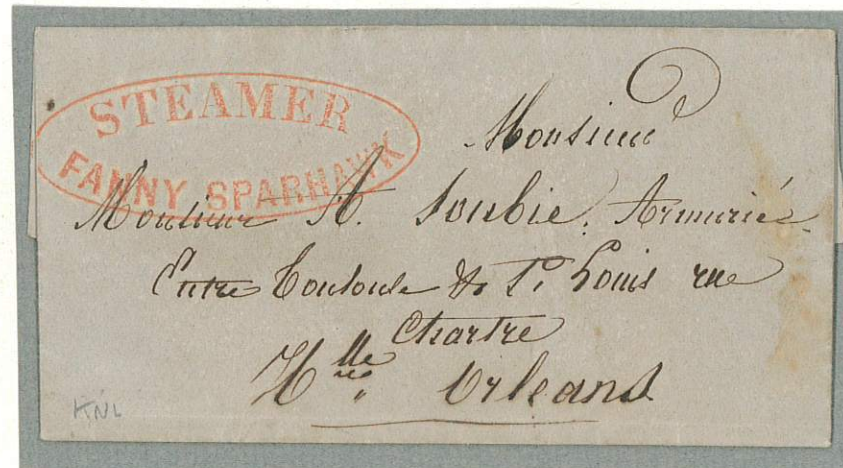 STEAMER
FANNY SPARHAWK
Monsieur
Monsieur A. Soubie, Armurié.
Entre Toulouse & St. Louis rue
Chartre
Nlle Orleans
KNL